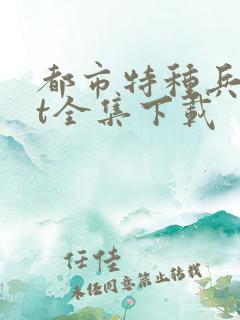 都市特种兵
t全集下载
任佳
未经同意禁止转载